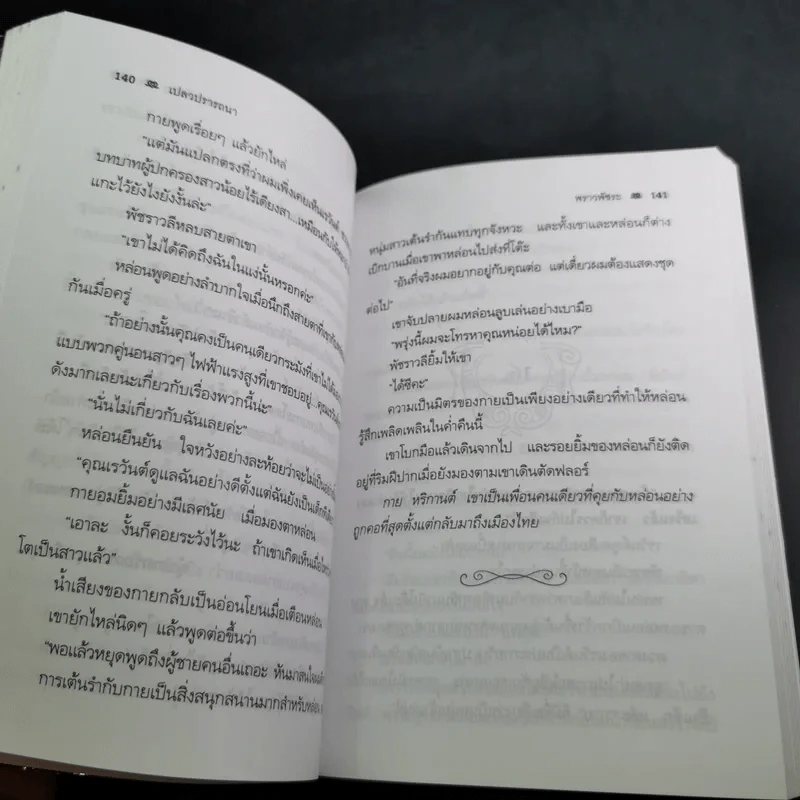 140 เปลวปรารถนา
กายพูดเรื่อยๆ แล้วยักไหล่
“แต่มันแปลกตรงที่ว่าผมเพิ่งเคยเห็นเรวันต์
บทบาทผู้ปกครองสาวน้อยไร้เดียงสา...เหมือนกับ
แกะไว้ยังไงยังงั้นล่ะ”
พัชราวลีหลบสายตาเขา
“เขาไม่ได้คิดถึงฉันในแง่นั้นหรอกค่ะ
หล่อนพูดอย่างลำบากใจเมื่อนึกถึงสายตาที่เขา
กันเมื่อครู่
“ถ้าอย่างนั้นคุณคงเป็นคนเดียวกระมังที่เขาไม่ได้
แบบพวกคู่นอนสาวๆ ไฟฟ้าแรงสูงที่เขาชอบอยู่...คุณเรวันต์
ดังมากเลยนะเกี่ยวกับเรื่องพวกนี้น่ะ”
“นั่นไม่เกี่ยวกับฉันเลยค่ะ”
หล่อนยืนยัน ใจหวังอย่างละห้อยว่าจะไม่เป็นอย่าง
“คุณเรวันต์ดูแลฉันอย่างดีตั้งแต่ฉันยังเป็นเด็ก
กายอมยิ้มอย่างมีเลศนัย เมื่อมองตาหล่อน
“เอาละ งั้นก็คอยระวังไว้นะ ถ้าเขาเกิดเห็นเมื่อไหร่
โตเป็นสาวแล้ว”
น้ำเสียงของกายกลับเป็นอ่อนโยนเมื่อเตือนหล่อน
เขายักไหล่นิดๆ แล้วพูดต่อขึ้นว่า
“พอแล้วหยุดพูดถึงผู้ชายคนอื่นเถอะ หันมาสนใจ
การเต้นรำกับกายเป็นสิ่งสนุกสนานมากสำหรับหล่อน
พราวพัชระ 141
หนุ่มสาวเต้นรำกันแทบทุกจังหวะ และทั้งเขาและหล่อนก็ต่าง
เบิกบานเมื่อเขาพาหล่อนไปส่งที่โต๊ะ
“อันที่จริงผมอยากอยู่กับคุณต่อ แต่เดี๋ยวผมต้องแสดงชุด
ต่อไป”
เขาจับปลายผมหล่อนลูบเล่นอย่างเบามือ
“พรุ่งนี้ผมจะโทรหาคุณหน่อยได้ไหม?”
พัชราวลียิ้มให้เขา
“ได้ซีคะ”
ความเป็นมิตรของกายเป็นเพียงอย่างเดียวที่ทำให้หล่อน
รู้สึกเพลิดเพลินในค่ำคืนนี้
เขาโบกมือแล้วเดินจากไป และรอยยิ้มของหล่อนก็ยังติด
อยู่ที่ริมฝีปากเมื่อยังมองตามเขาเดินตัดฟลอร์
กาย หริกานต์ เขาเป็นเพื่อนคนเดียวที่คุยกับหล่อนอย่าง
ถูกคอที่สุดตั้งแต่กลับมาถึงเมืองไทย